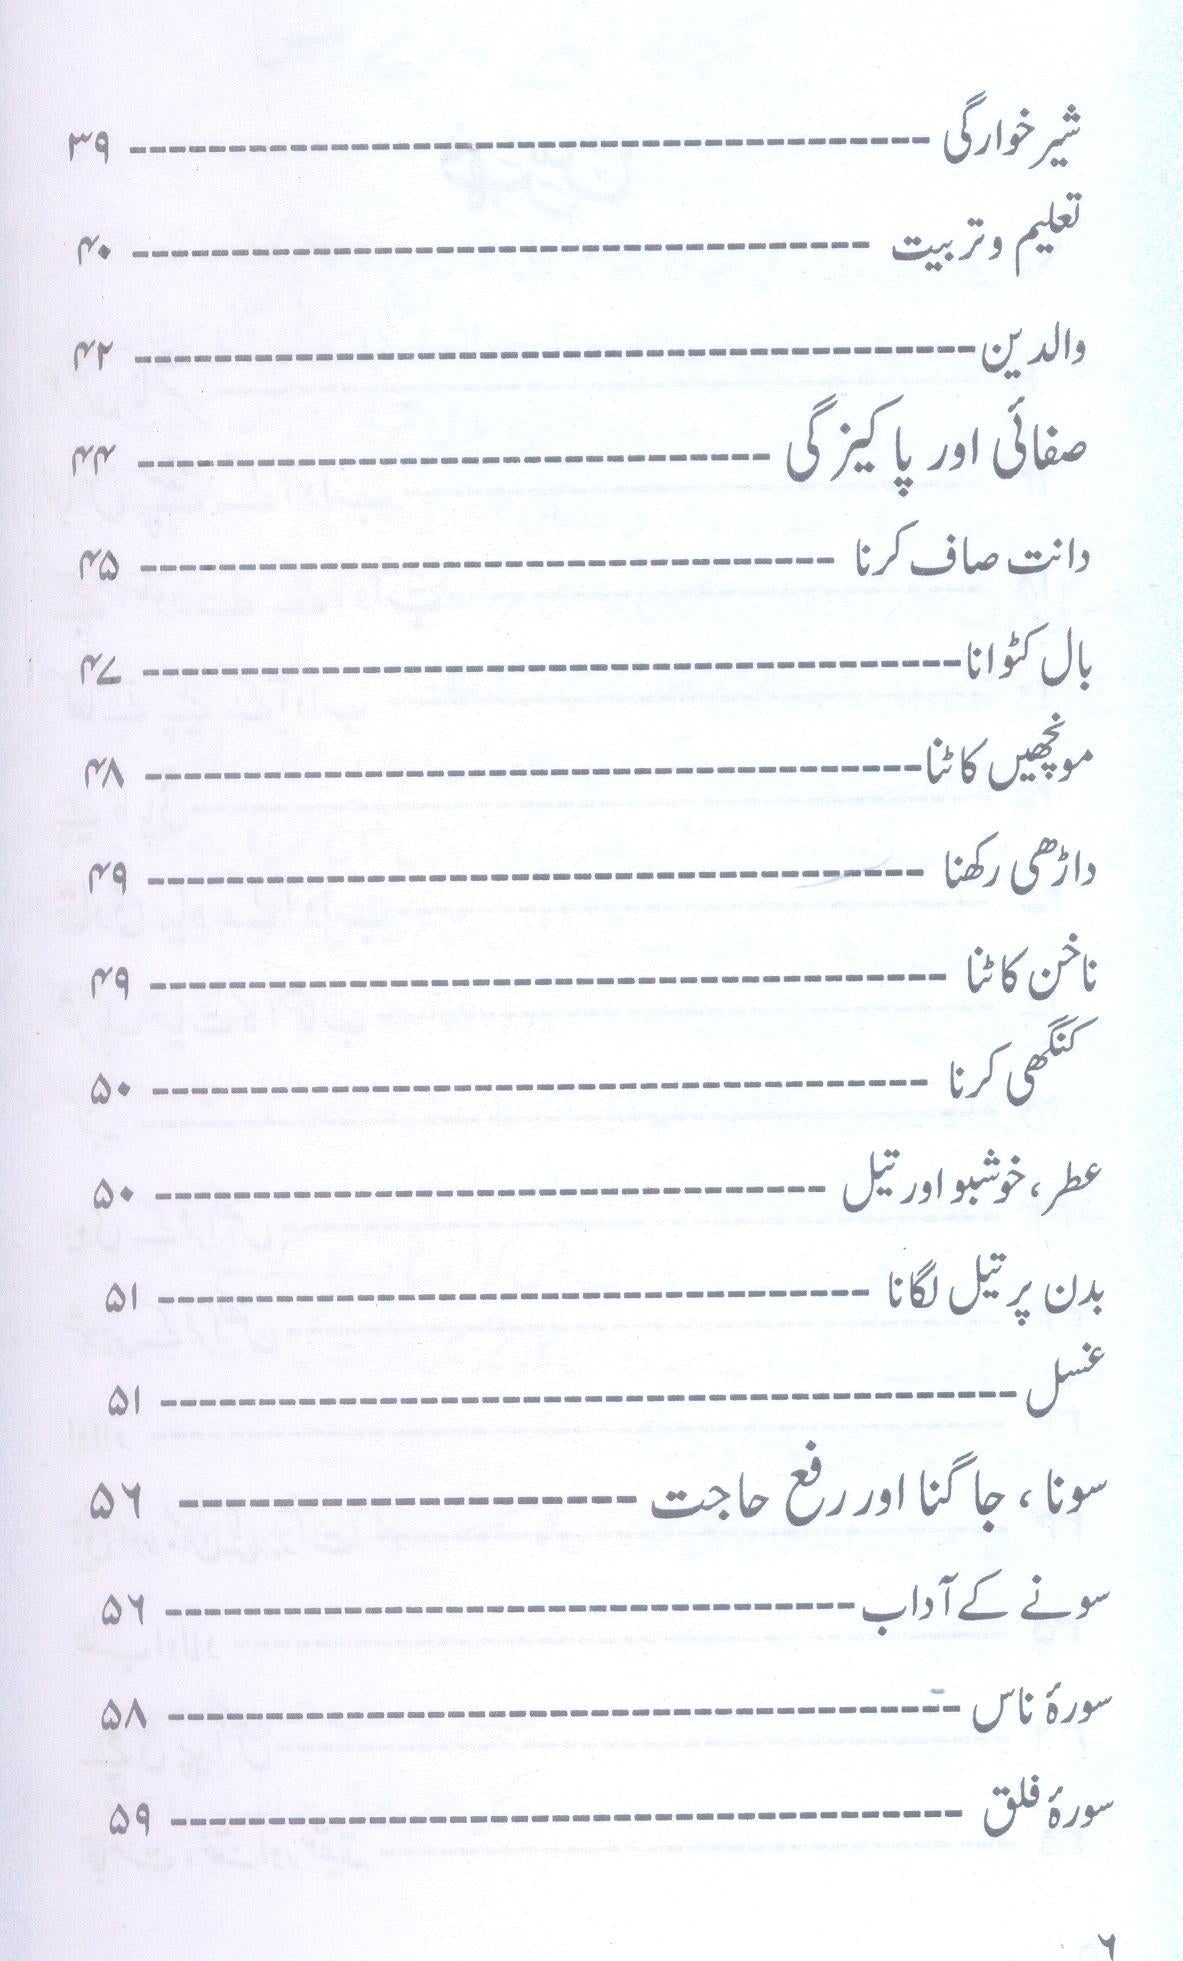 شیر خوارگی ---------------------------------------- ۳۹
تعلیم و تربیت ------------------------------------- ۴۰
والدین ------------------------------------------ ۴۲
صفائی اور پاکیزگی -------------------------------- ۴۴
دانت صاف کرنا ----------------------------------- ۴۵
بال کٹوانا ----------------------------------------- ۴۷
مونچھیں کاٹنا --------------------------------------- ۴۸
داڑھی رکھنا --------------------------------------- ۴۹
ناخن کاٹنا ---------------------------------------- ۴۹
کنگھی کرنا --------------------------------------- ۵۰
عطر، خوشبو اور تیل ---------------------------------- ۵۰
بدن پر تیل لگانا ------------------------------------ ۵۱
غسل ------------------------------------------- ۵۱
سونا، جاگنا اور رفع حاجت ------------------- ۵۶
سونے کے آداب ----------------------------------- ۵۶
سورۂ ناس ---------------------------------------- ۵۸
سورۂ فلق ---------------------------------------- ۵۹
۶